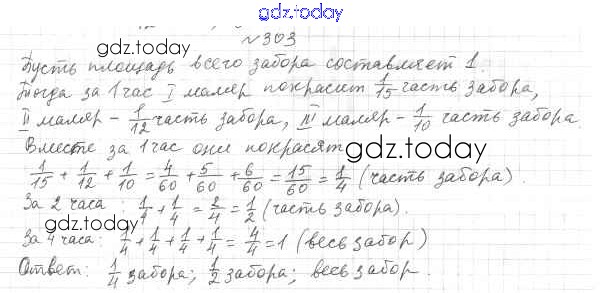 gdz.today
gdz.today
№303
Пусть площадь всего забора составляет 1.
Тогда за 1 час I маляр покрасит 1/15 часть забора,
II маляр - 1/12 часть забора, III маляр - 1/10 часть забора.
Вместе за 1 час они покрасят
gdz.today
1/15 + 1/12 + 1/10 = 4/60 + 5/60 + 6/60 = 15/60 = 1/4 (часть забора).
За 2 часа: 1/4 + 1/4 = 2/4 = 1/2 (часть забора).
gdz.today
За 4 часа: 1/4 + 1/4 + 1/4 + 1/4 = 4/4 = 1 (весь забор)
Ответ: 1/4 забора; 1/2 забора; весь забор.
gdz.today